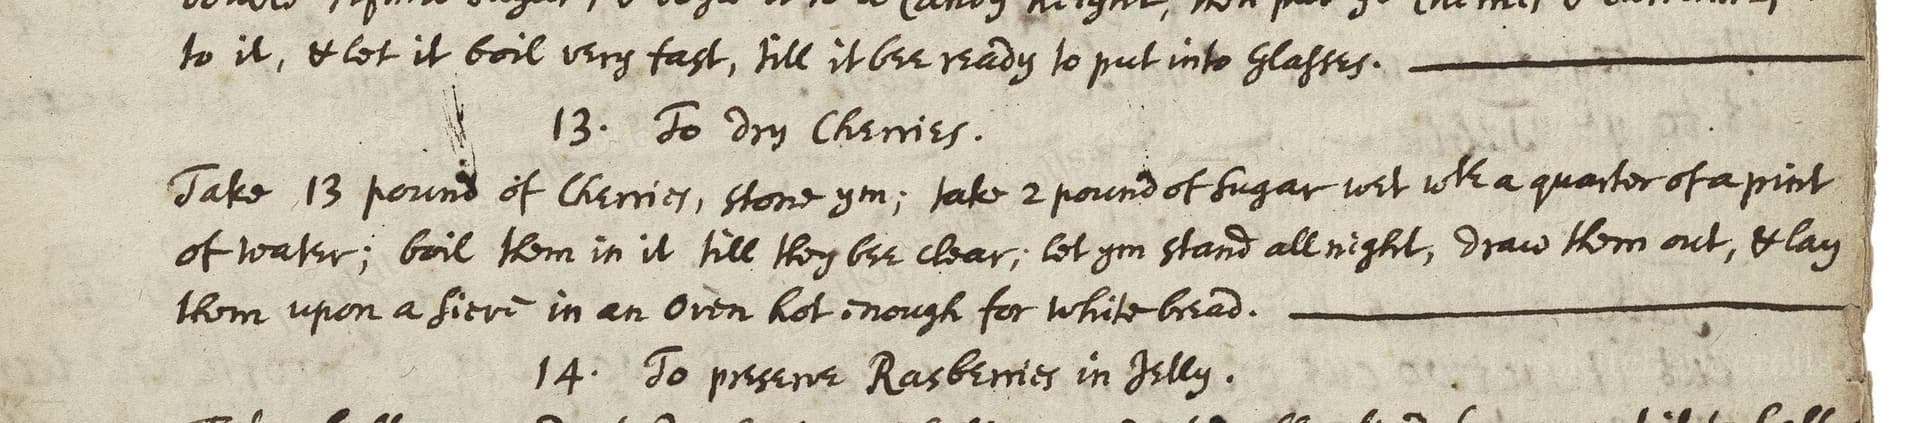 to it, & let it boil very fast, till it bee ready to put into Glasses.
13. To dry Cherries.
Take 13 pound of Cherries, stone ym; take 2 pound of Sugar wet wth a quarter of a pint
of water; boil them in it till they bee clear; let ym stand all night, draw them out, & lay
them upon a sieve in an Oven hot enough for white bread.
14. To preserve Rasberries in Jelly.